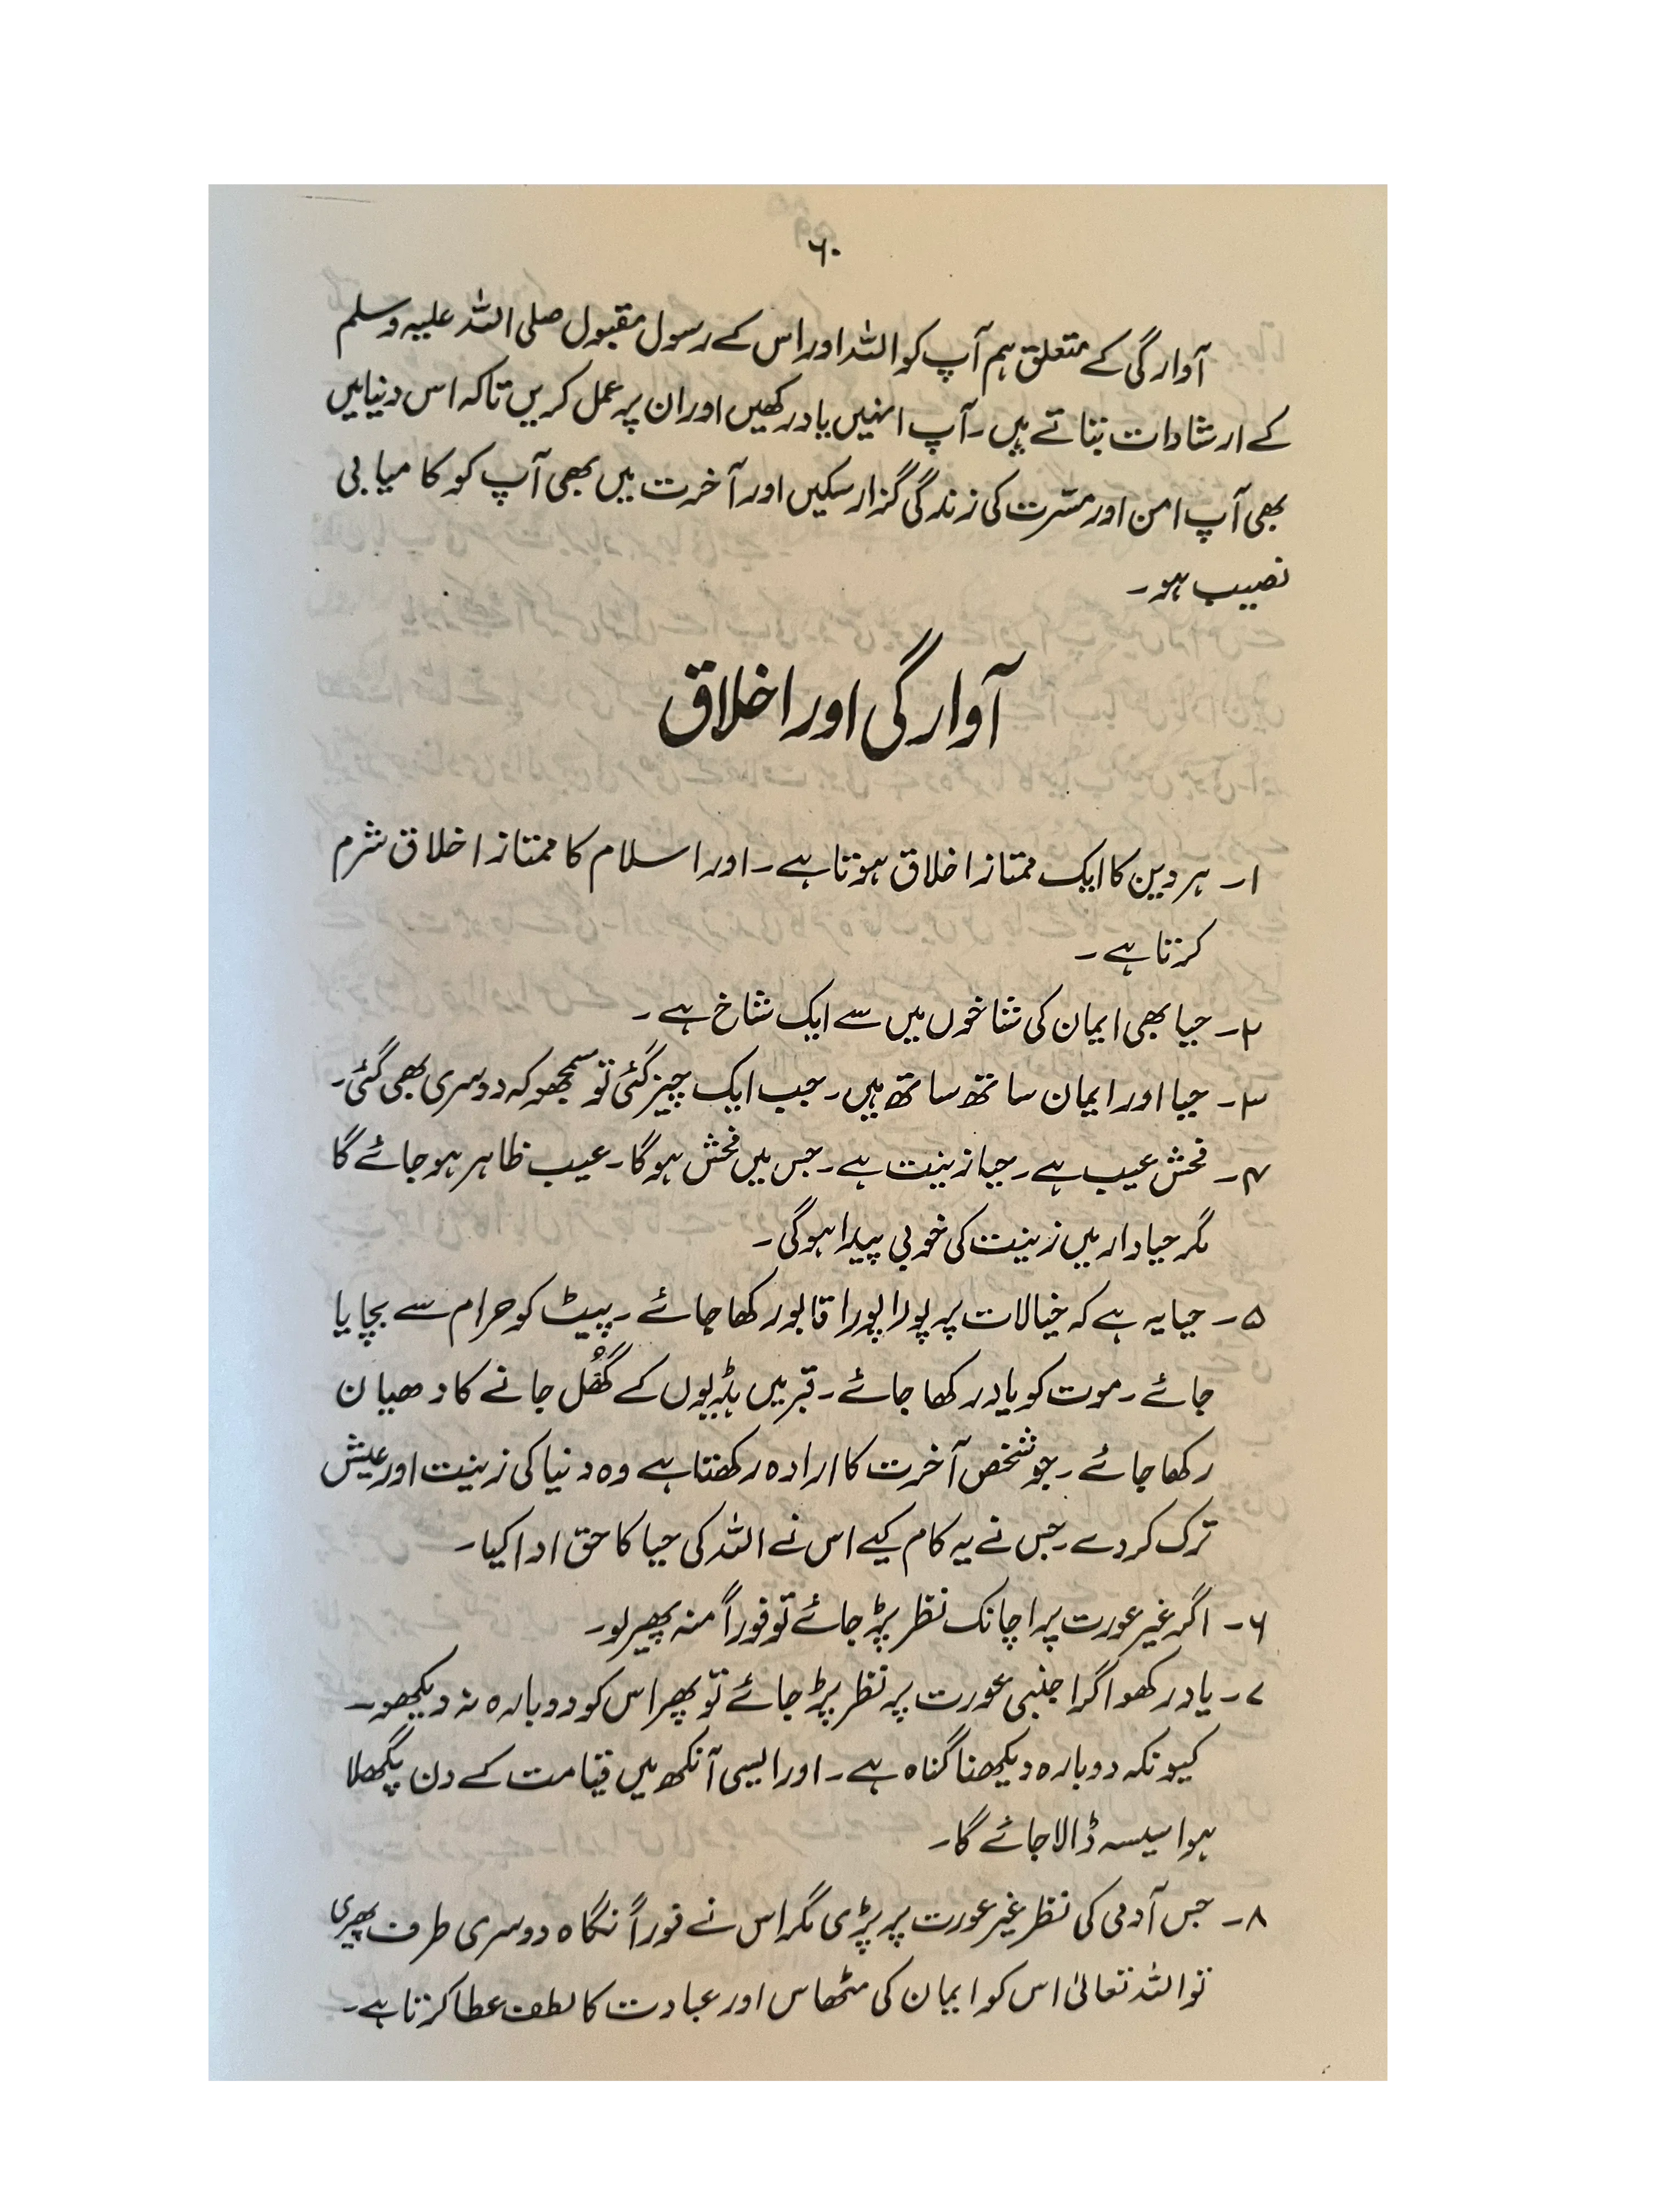 ۶۰
آوارگی کے متعلق ہم آپ کو اللہ اور اس کے رسول مقبول صلی اللہ علیہ وسلم
کے ارشادات بتاتے ہیں۔ آپ انہیں یاد رکھیں اور ان پر عمل کریں تاکہ اس دنیا میں
بھی آپ امن اور مسّرت کی زندگی گزار سکیں اور آخرت میں بھی آپ کو کامیابی
نصیب ہو۔
آوارگی اور اخلاق
۱۔ ہر دین کا ایک ممتاز اخلاق ہوتا ہے۔ اور اسلام کا ممتاز اخلاق شرم
کرتا ہے۔
۲۔ حیا بھی ایمان کی شاخوں میں سے ایک شاخ ہے۔
۳۔ حیا اور ایمان ساتھ ساتھ ہیں۔ جب ایک چیز گئی تو سمجھو کہ دوسری بھی گئی۔
۴۔ فحش عیب ہے۔ حیا زینت ہے۔ جس میں فحش ہوگا۔ عیب ظاہر ہو جائے گا
مگر حیادار میں زینت کی خوبی پیدا ہوگی۔
۵۔ حیا یہ ہے کہ خیالات پر پورا پورا قابو رکھا جائے۔ پیٹ کو حرام سے بچایا
جائے۔ موت کو یاد رکھا جائے۔ قبر میں ہڈیوں کے گھُل جانے کا دھیان
رکھا جائے۔ جو شخص آخرت کا ارادہ رکھتا ہے وہ دنیا کی زینت اور عیش
ترک کر دے۔ جس نے یہ کام کیے اس نے اللہ کی حیا کا حق ادا کیا۔
۶۔ اگر غیر عورت پر اچانک نظر پڑ جائے تو فوراً منہ پھیر لو۔
۷۔ یاد رکھو اگر اجنبی عورت پر نظر پڑ جائے تو پھر اس کو دوبارہ نہ دیکھو۔
کیونکہ دوبارہ دیکھنا گناہ ہے۔ اور ایسی آنکھ میں قیامت کے دن پگھلا
ہوا سیسہ ڈالا جائے گا۔
۸۔ جس آدمی کی نظر غیر عورت پر پڑی مگر اس نے فوراً نگاہ دوسری طرف پھیری
تو اللہ تعالیٰ اس کو ایمان کی مٹھاس اور عبادت کا لطف عطا کرتا ہے۔